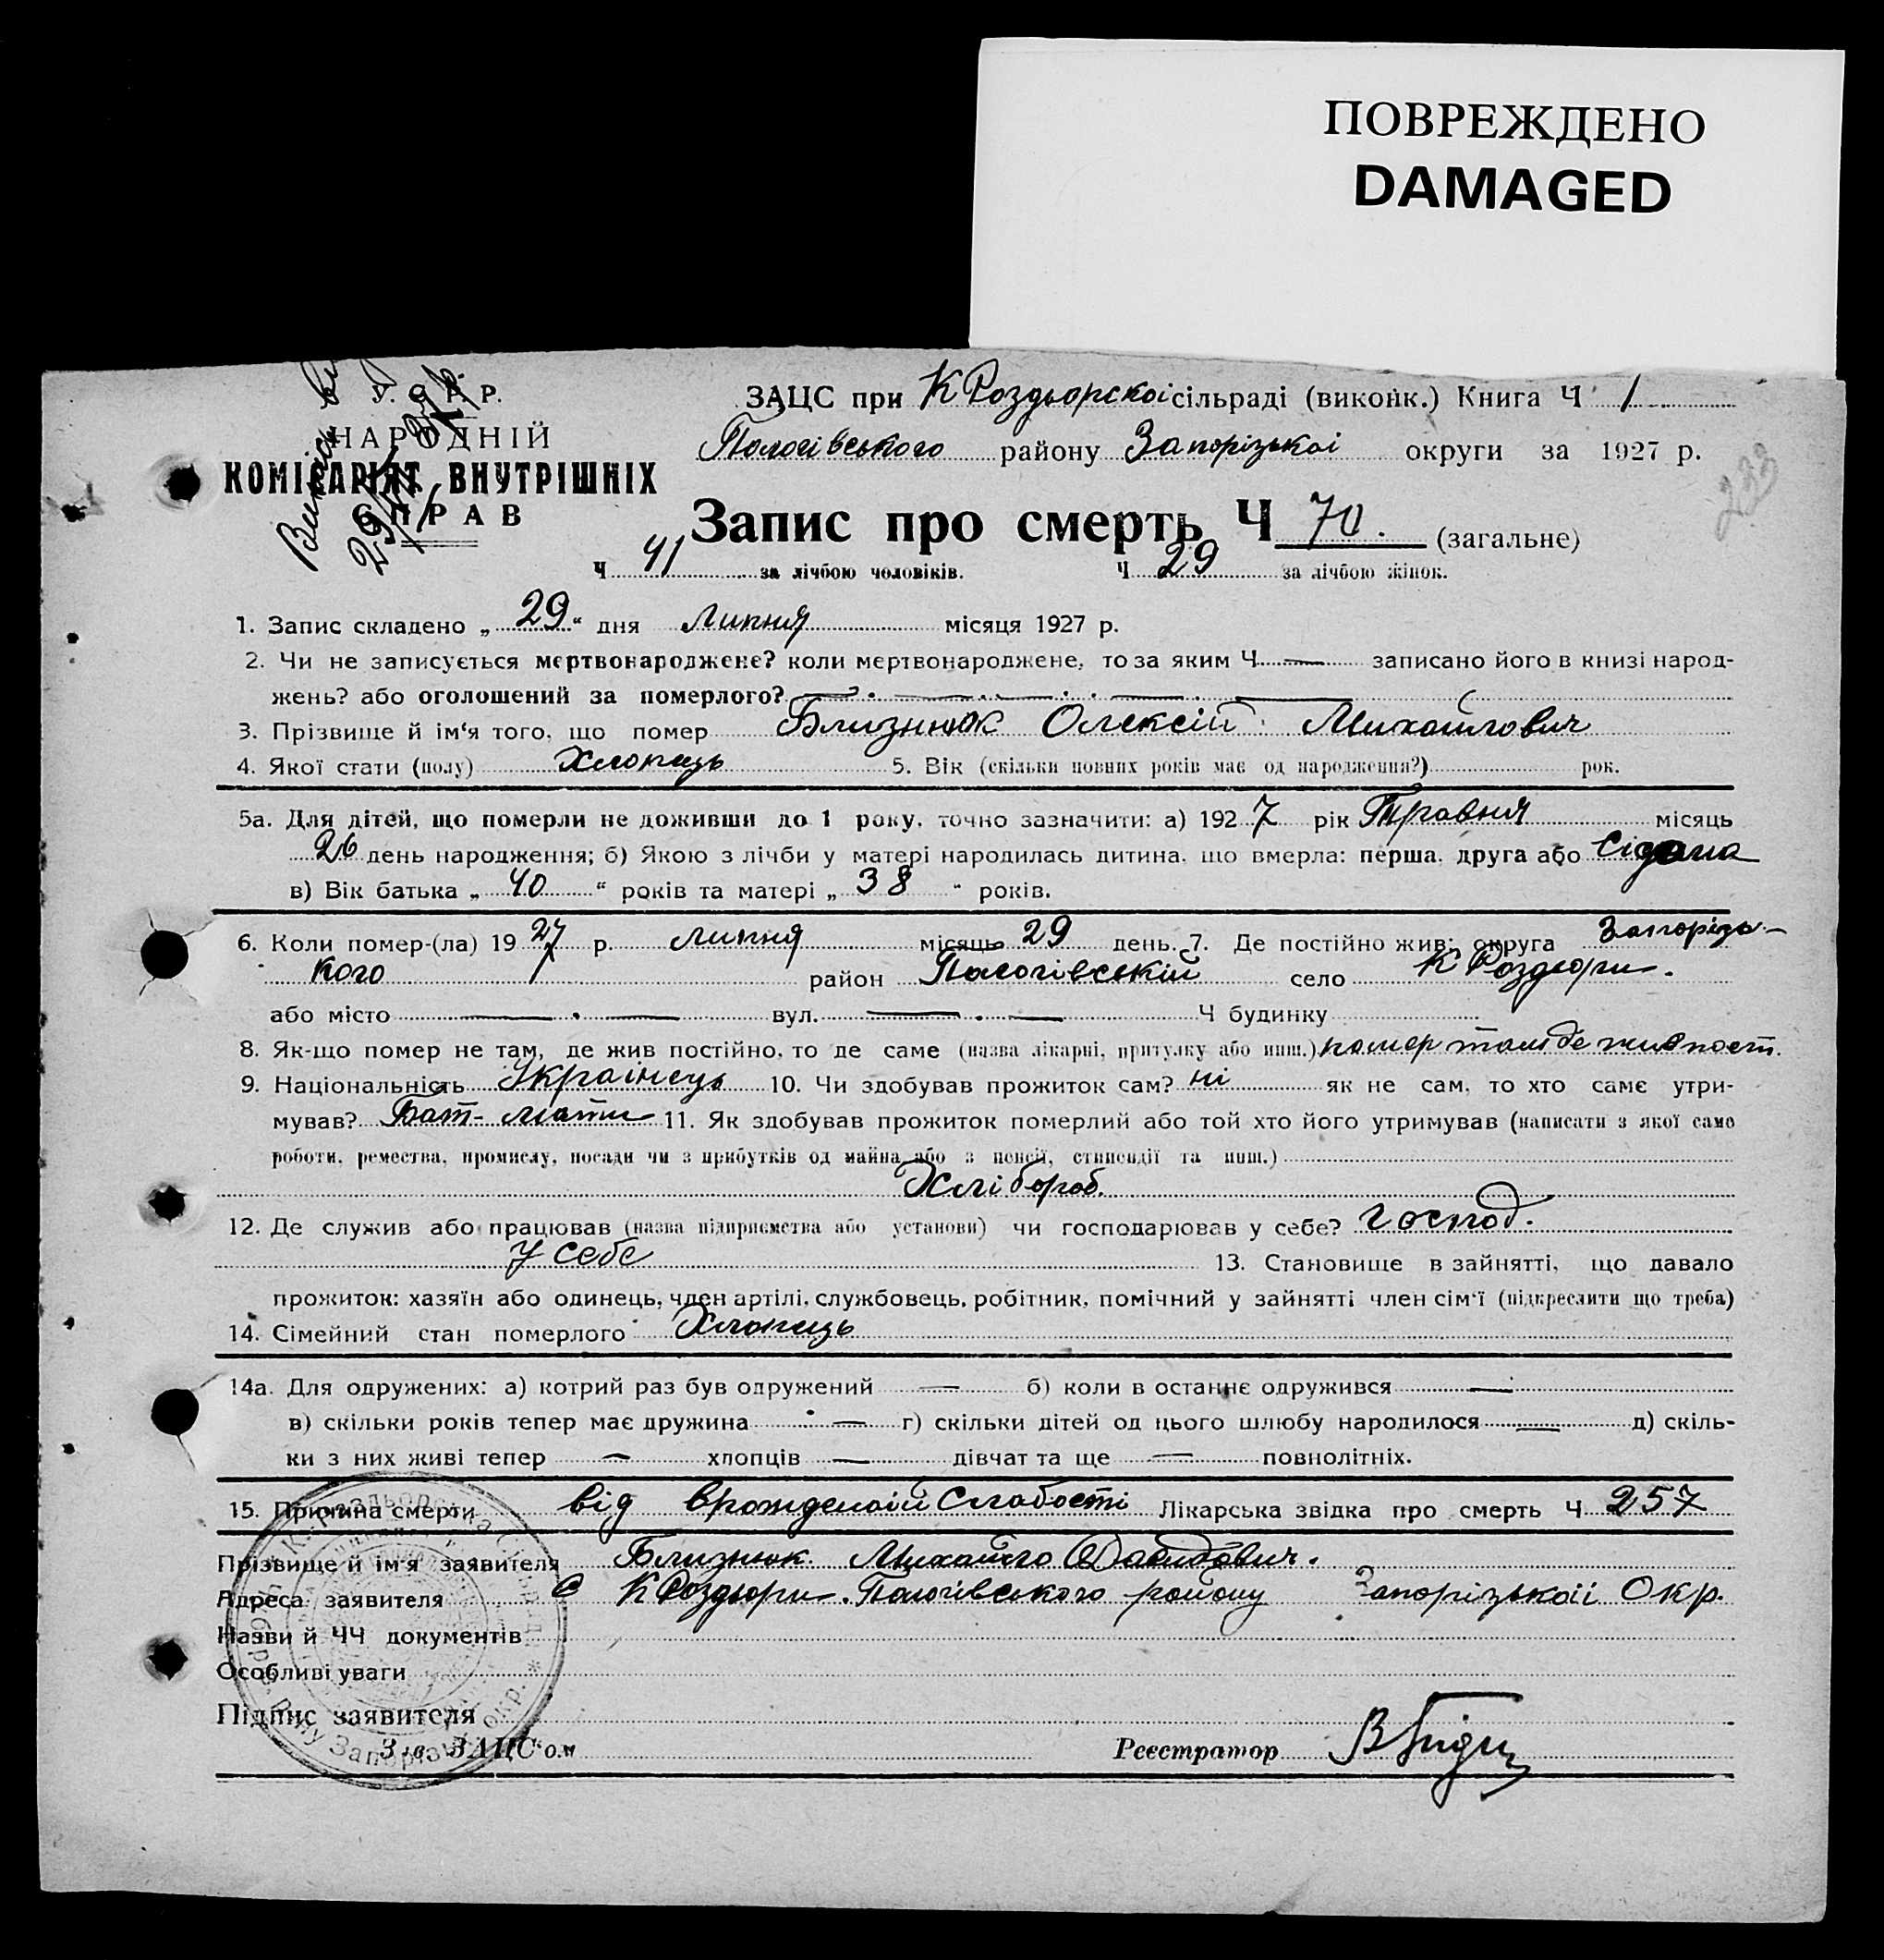 ПОВРЕЖДЕНО
DAMAGED
У. С. Р. Р.
НАРОДНІЙ
КОМІСАРІЯТ ВНУТРІШНІХ
СПРАВ
29/VII
ЗАЦС при К Роздьорскоі сільраді (виконк.) Книга Ч 1
Пологівського району Запорізькоі округи за 1927 р.
233
Запис про смерть Ч 70. (загальне)
Ч 41 за лічбою чоловіків. Ч 29 за лічбою жінок.
1. Запис складено „ 29 “ дня Липня місяця 1927 р.
2. Чи не записується мертвонароджене? коли мертвонароджене, то за яким Ч — записано його в книзі народ-
жень? або оголошений за померлого? — . — . . — . . — . —
3. Прізвище й ім‘я того, що помер Близнюк Олексій Михайлович
4. Якої стати (полу) Хлопець 5. Вік (скільки повних років має од народження?) рок.
5а. Для дітей, що померли не доживши до 1 року, точно зазначити: а) 1927 рік Травня місяць
26 день народження; б) Якою з лічби у матері народилась дитина, що вмерла: перша, друга або
в) Вік батька „ 40 “ років та матері „ 38 “ років.
6. Коли помер-(ла) 1927 р. липня місяць 29 день. 7. Де постійно жив: округа Запорізь-
кого район Пологівський село К Роздори.
або місто — . — вул. — . — Ч будинку
8. Як-що помер не там, де жив постійно, то де саме (назва лікарні, притулку або инш.) помер там де жив пост.
9. Національність Українець 10. Чи здобував прожиток сам? ні як не сам, то хто саме утри-
мував? Бат- мати 11. Як здобував прожиток померлий або той хто його утримував (написати з якої саме
роботи, ремества, промислу, посади чи з прибутків од майна або з пенсії, стипендії та инш.)
Хлібороб.
12. Де служив або працював (назва підприємства або установи) чи господарював у себе? Господ.
у себе 13. Становище в зайнятті, що давало
прожиток: хазяїн або одинець, член артілі, службовець, робітник, помічний у зайнятті член сім‘ї (підкреслити що треба)
14. Сімейний стан померлого Хлопець
14а. Для одружених: а) котрий раз був одружений — б) коли в останнє одружився —
в) скільки років тепер має дружина — г) скільки дітей од цього шлюбу народилося — д) скіль-
ки з них живі тепер — хлопців — дівчат та ще — повнолітніх.
15. Причина смерти від врожденоій слабості Лікарська звідка про смерть Ч 257
Прізвище й ім‘я заявителя Близнюк Михайло Давидович.
Адреса заявителя С К Роздори. Пологівського району Запорізькоіі Окр.
Назви й ЧЧ документів
Особливі уваги
Підпис заявителя
Зав. ЗАЦС‘ом Реєстратор